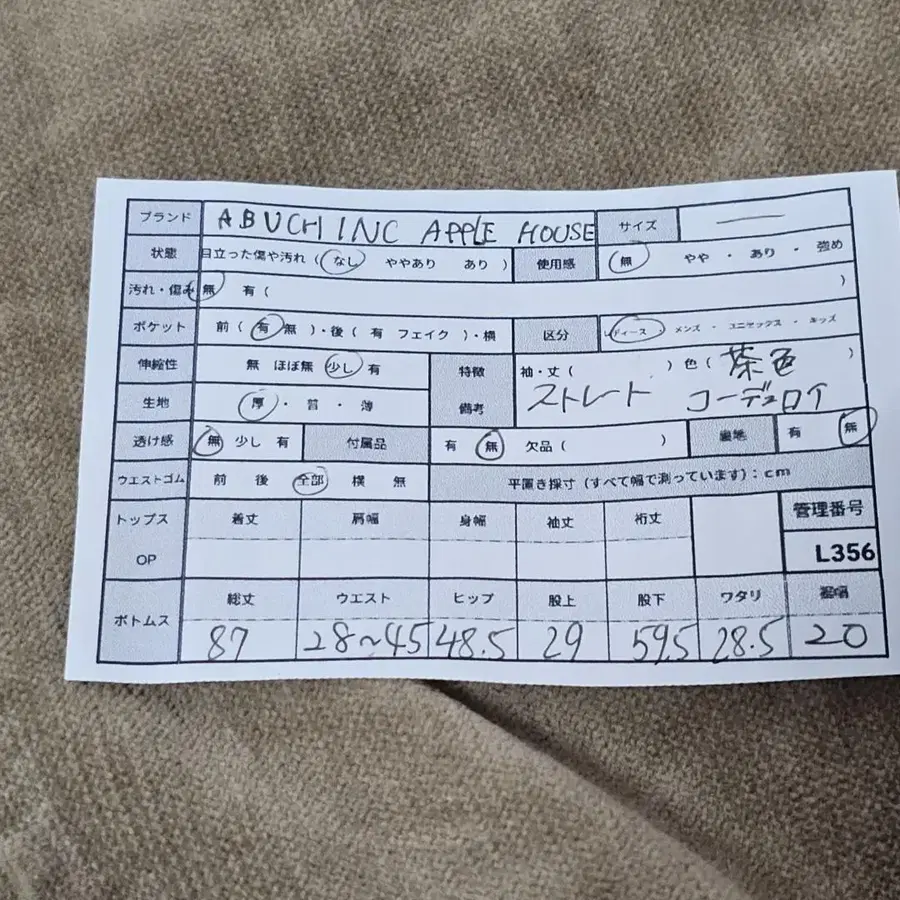 ブランド ABUCH INC APPLE HOUSE サイズ ー
状態 目立った傷や汚れ ( なし ややあり あり ) 使用感 無 やや ・ あり ・ 強め
汚れ・傷み 無 有 ( )
ポケット 前 ( 有 無 )・後 ( 有 フェイク )・横 区分 レディース ・ メンズ ・ ユニセックス ・ キッズ
伸縮性 無 ほぼ無 少し 有 特徴 袖・丈 ( ) 色 ( 茶色 )
生地 厚 ・ 普 ・ 薄 備考 ストレート コーデュロイ
透け感 無 少し 有 付属品 有 無 欠品 ( ) 裏地 有 無
ウエストゴム 前 後 全部 横 無 平置き採寸 (すべて幅で測っています) : cm
トップス 着丈 肩幅 身幅 袖丈 裄丈 管理番号
OP L356
ボトムス 総丈 ウエスト ヒップ 股上 股下 ワタリ 裾幅
87 28~45 48.5 29 59.5 28.5 20